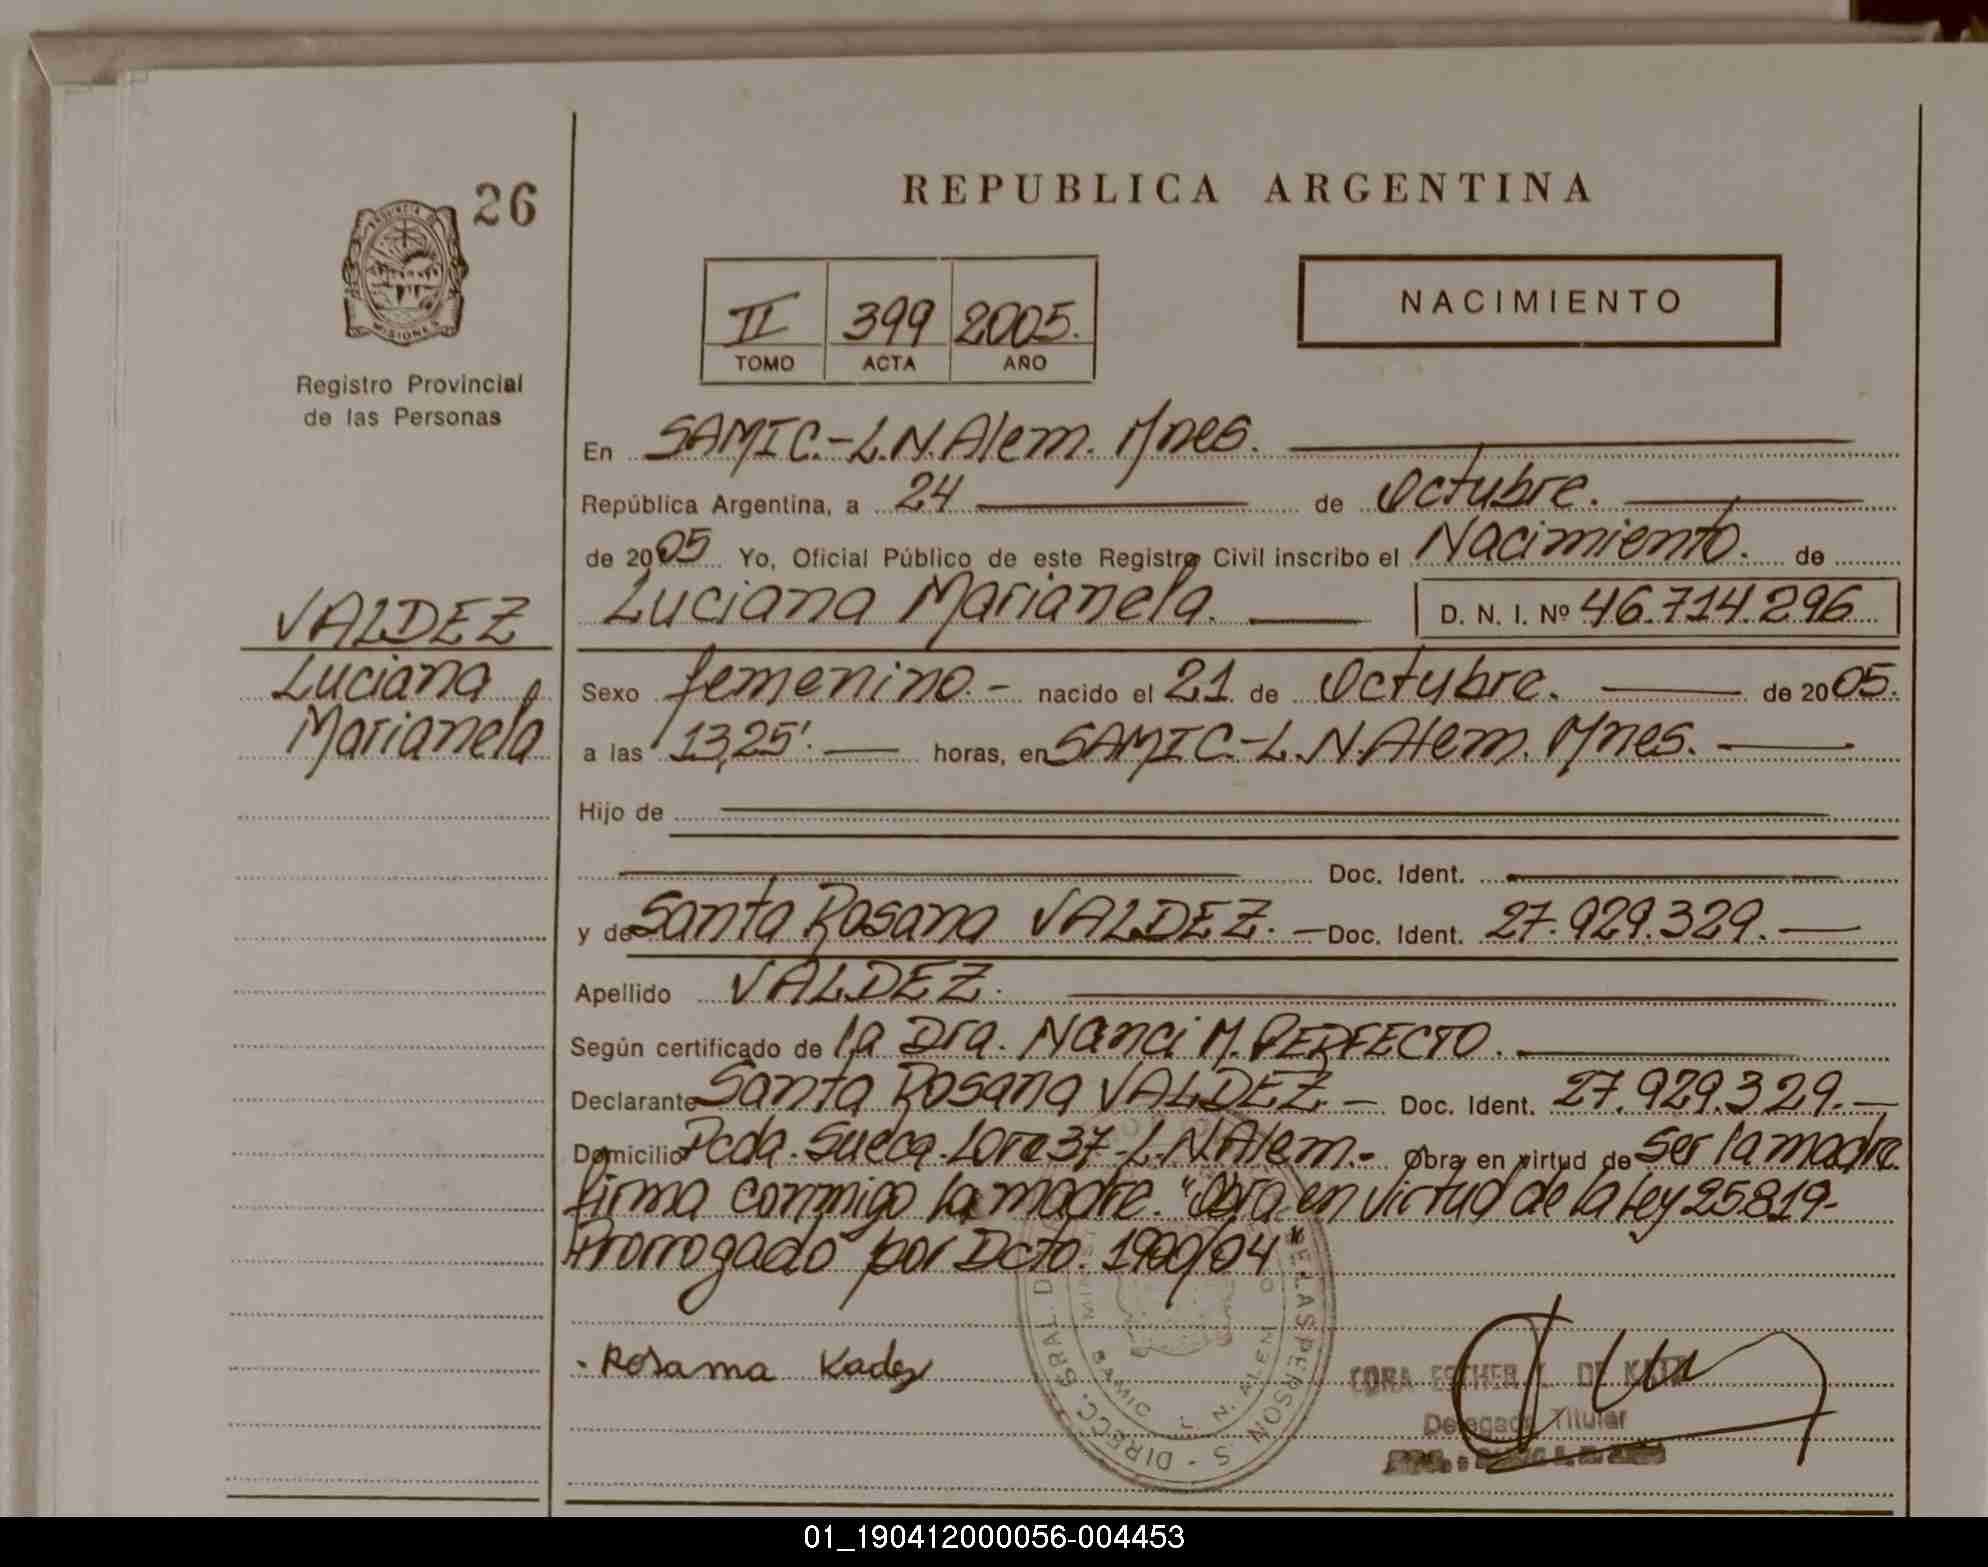 26
PROVINCIA DE
MISIONES
Registro Provincial
de las Personas
VALDEZ
Luciana
Marianela
REPUBLICA ARGENTINA
II 399 2005.
TOMO ACTA AÑO
NACIMIENTO
En SAMIC.-L.N.Alem. Mnes.
República Argentina, a 24 de Octubre.
de 2005 Yo, Oficial Público de este Registro Civil inscribo el Nacimiento. de
Luciana Marianela. D. N. I. Nº 46.714.296
Sexo femenino.- nacido el 21 de Octubre. de 2005.
a las 13,25'. horas, en SAMIC.-L.N.Alem. Mnes.
Hijo de
Doc. Ident.
y de Santa Rosana VALDEZ. - Doc. Ident. 27.929.329.-
Apellido VALDEZ.
Según certificado de la Dra. Nanci M. PERFECTO.
Declarante Santa Rosana VALDEZ.- Doc. Ident. 27.929.329.-
Domicilio Pcda. Sueca. Lore 37-L.N.Alem.- Obra en virtud de ser la madre
firma conmigo la madre. "Obra en virtud de la Ley 25819-
Prorrogado por Dcto. 1900/04"
Rosama
CORA ESTHER L. DE KATZ
Delegada Titular
DIRECC. GRAL. DE LAS PERSONAS
SAMIC L. N. ALEM
01_190412000056-004453